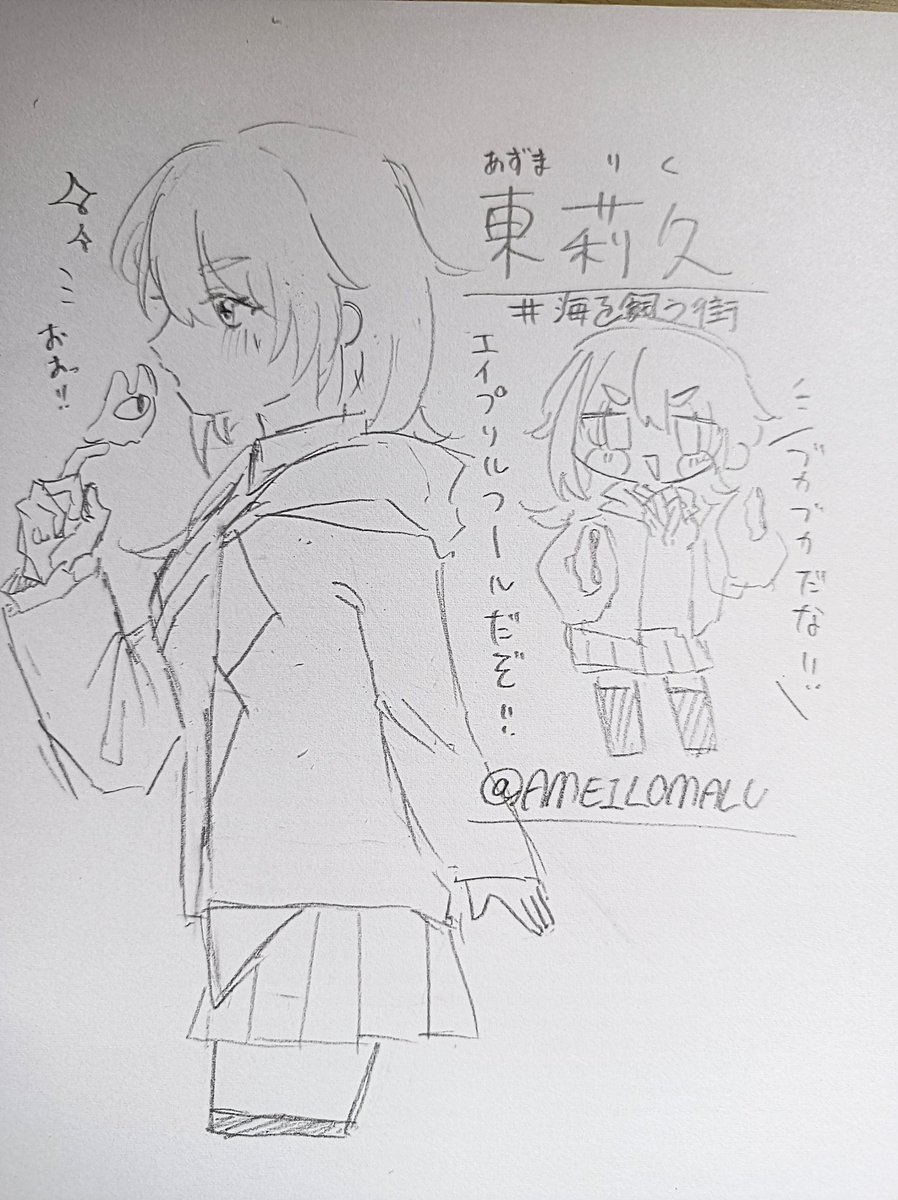 あずま りく
東莉久
#海を飼う街
エイプリルフールだぞ!!
ブカブカだな!!
おおっ!!
@AMEILOMALU